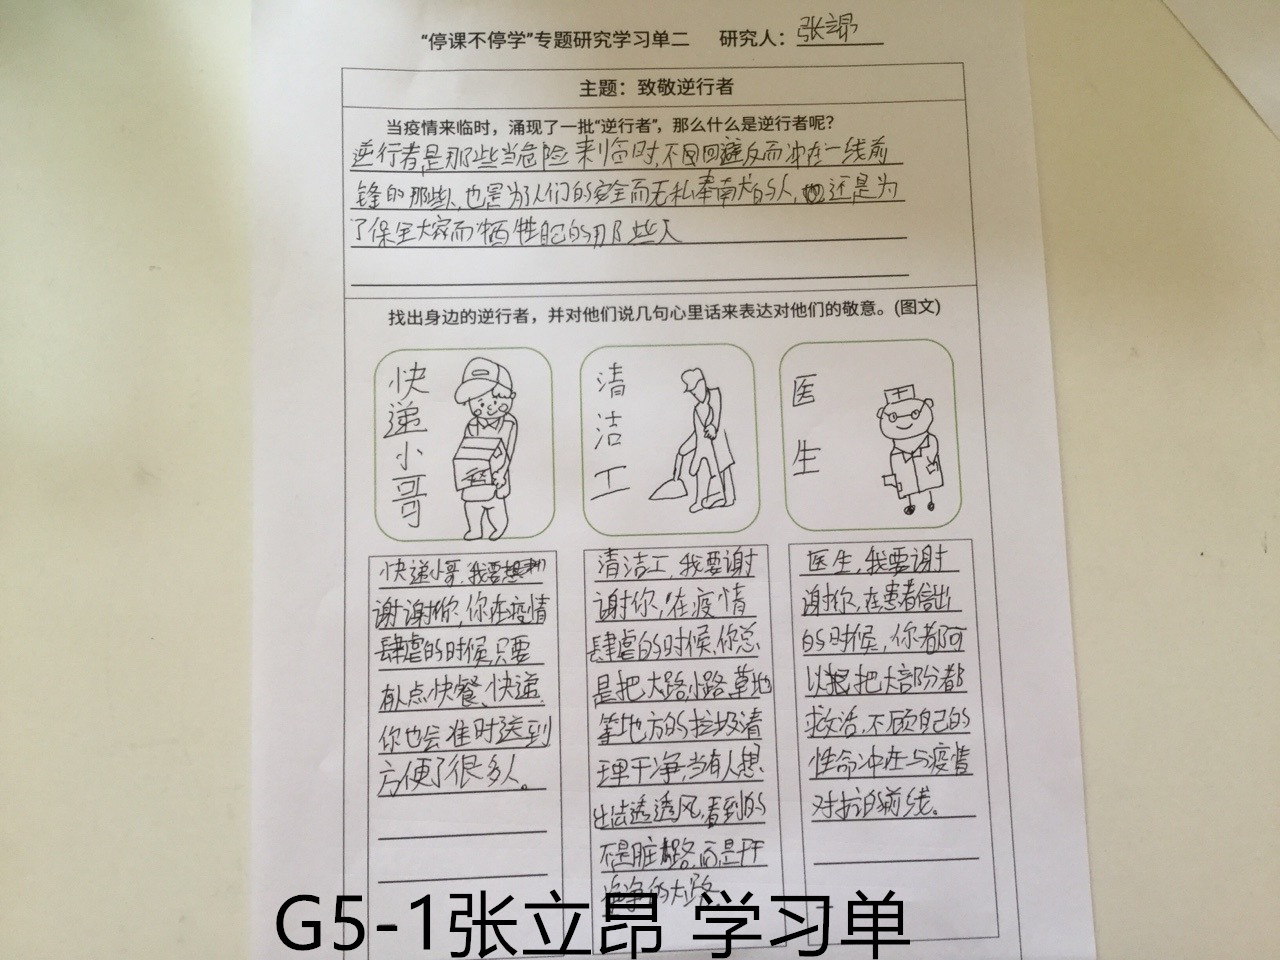 “停课不停学”专题研究学习单二 研究人：张立昂
主题：致敬逆行者
当疫情来临时，涌现了一批“逆行者”，那么什么是逆行者呢？
逆行者是那些当危险来临时，不回避反而冲在一线前
锋的那些人，也是为了人们的安全而无私奉献的人，还是为
了保全大家而牺牲自己的那些人
找出身边的逆行者，并对他们说几句心里话来表达对他们的敬意。(图文)
快递小哥
清洁工
医生
快递小哥，我要想
谢谢你，你在疫情
肆虐的时候，只要
有人点快餐、快递，
你也会准时送到
方便了很多人。
清洁工，我要谢
谢你，在疫情
肆虐的时候，你总
是把大路、小路、草地
等地方的垃圾清
理干净，当有人想
出去透透风，看到的
不是脏路，而是干
净的大路。
医生，我要谢
谢你，在患者
的时候，你都可
以把大部份都
救活，不顾自己的
性命冲在与疫情
对抗的前线。
G5-1张立昂 学习单